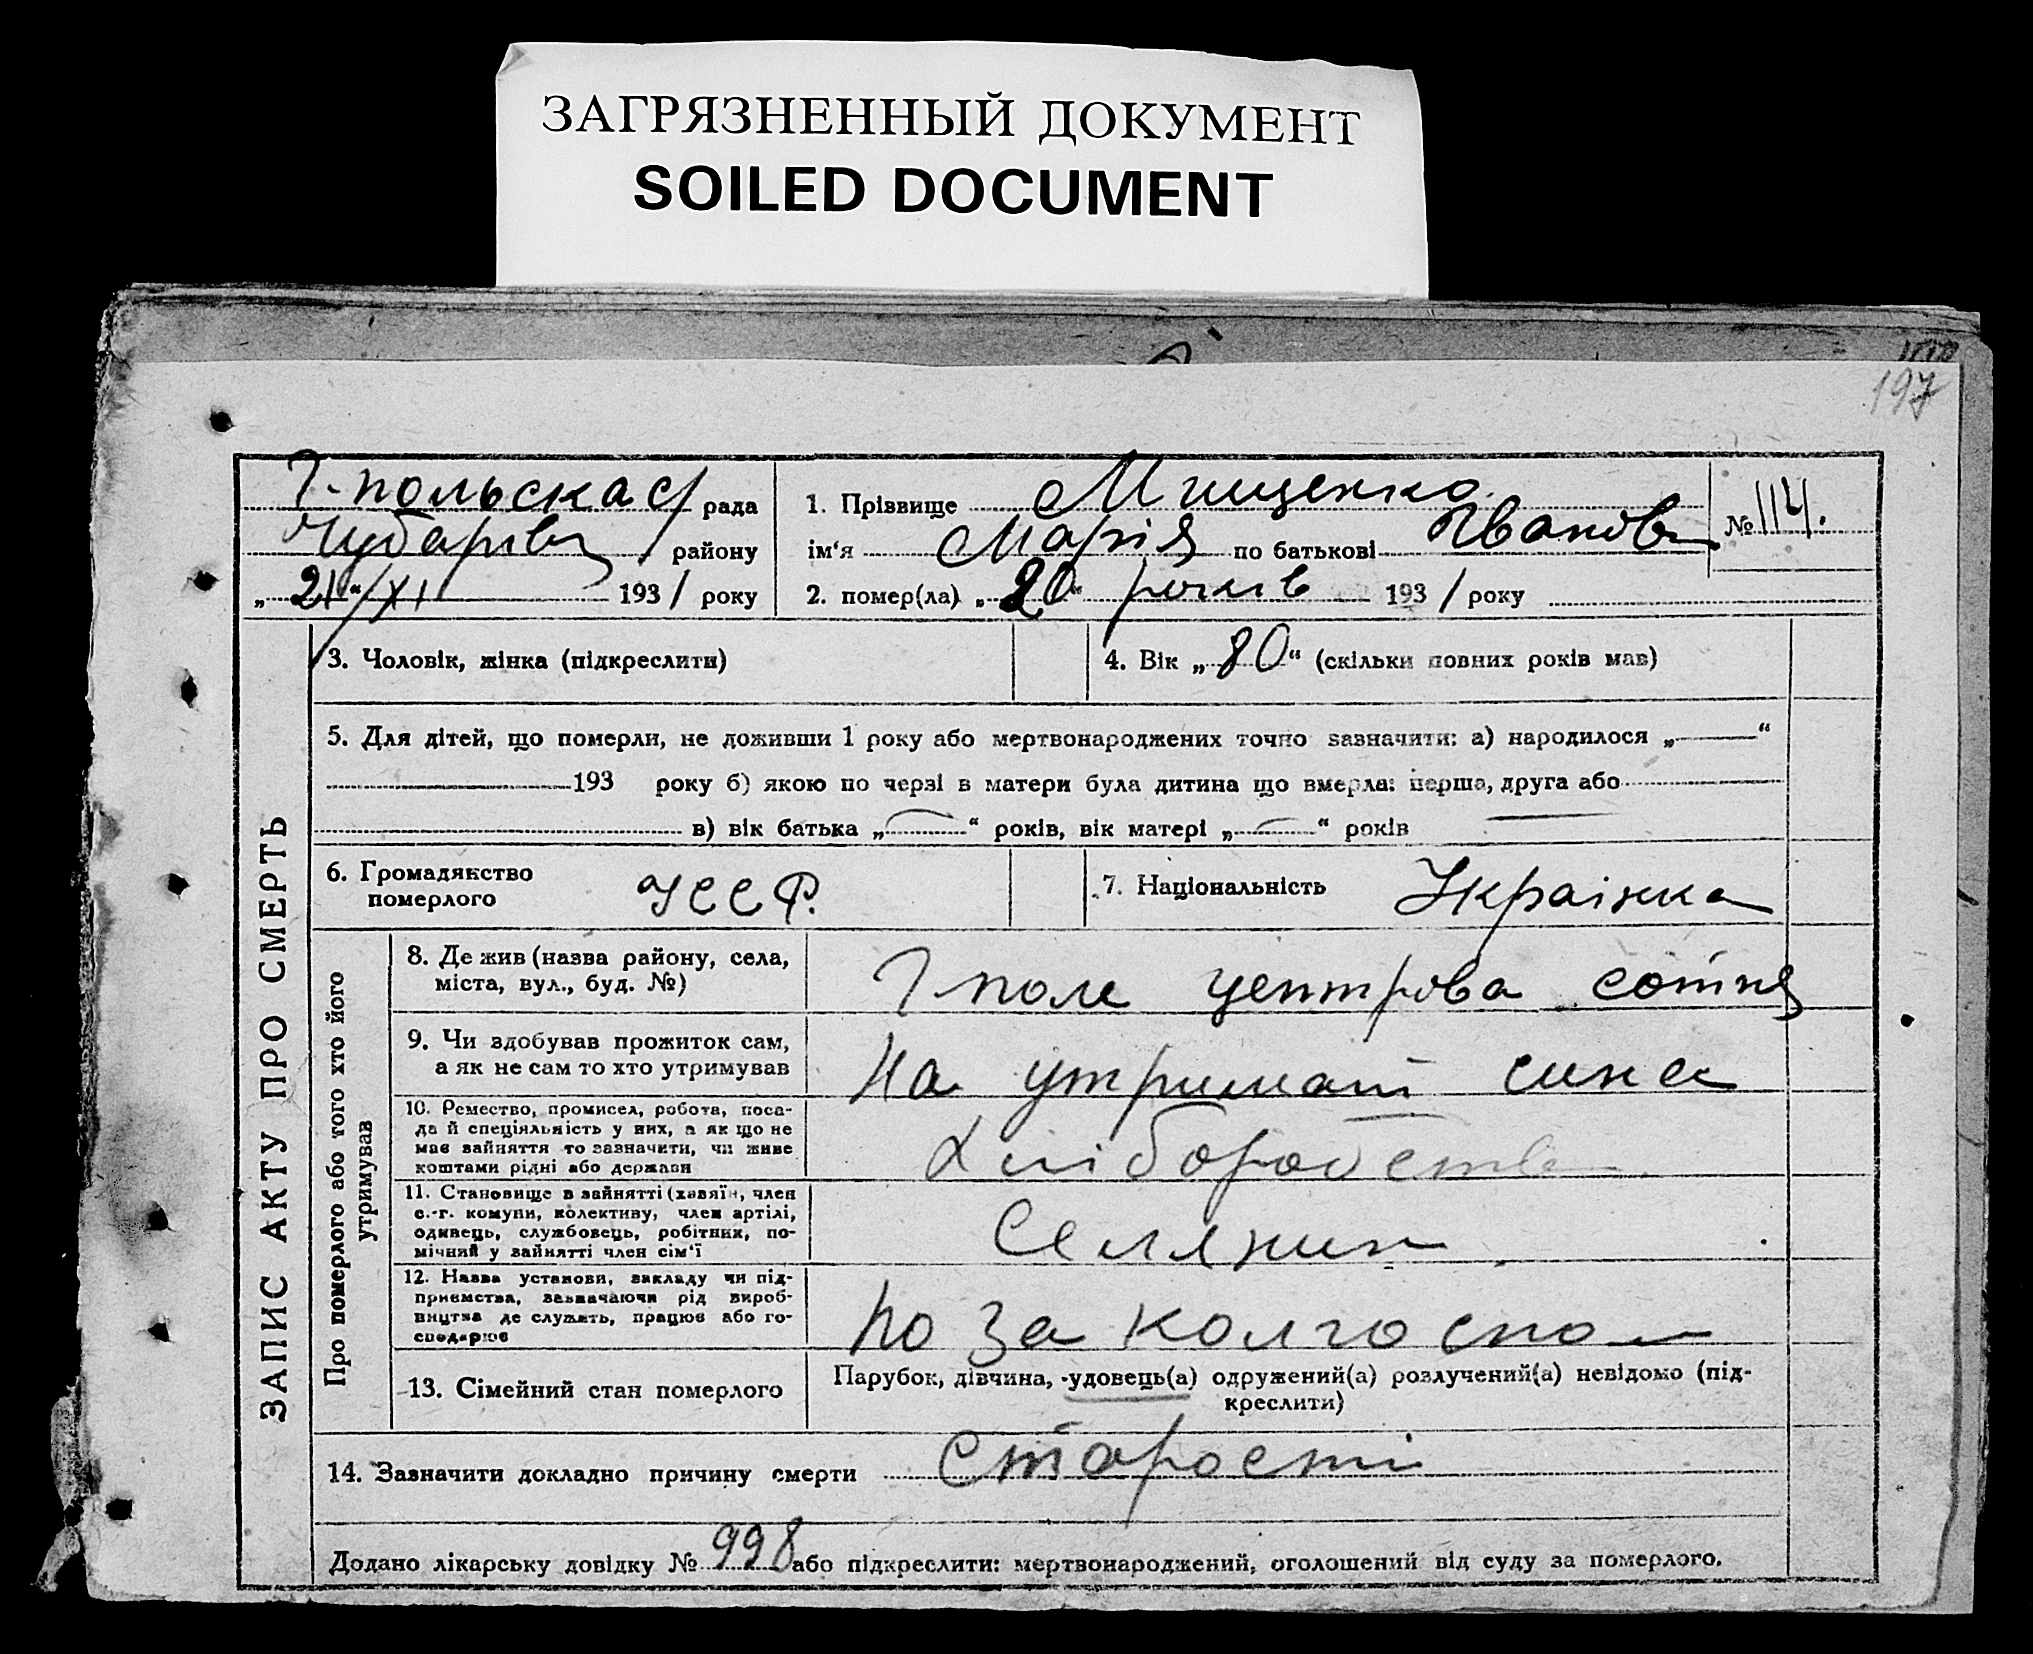 ЗАГРЯЗНЕННЫЙ ДОКУМЕНТ
SOILED DOCUMENT
197
Г-польска с/рада
Чубарівс району
„21“/XI 1931 року
1. Прізвище Мищенко
ім‘я Марія по батькові Іванов
№ 114.
2. помер(ла) „20“ років 1931 року
ЗАПИС АКТУ ПРО СМЕРТЬ
3. Чоловік, жінка (підкреслити)
4. Вік „80“ (скільки повних років мав)
5. Для дітей, що померли, не доживши 1 року або мертвонароджених точно зазначити: а) народилося „——“
193 року б) якою по черзі в матери була дитина що вмерла: перша, друга або
в) вік батька „—“ років, вік матері „—“ років —
6. Громадянство
померлого
УССР.
7. Національність Українка
Про померлого або того хто його
утримував
8. Де жив (назва району, села,
міста, вул., буд. №)
Г поле центрова сотня
9. Чи здобував прожиток сам,
а як не сам то хто утримував
На утриман сина
10. Ремество, промисел, робота, поса-
да й спеціяльність у них, а як що не
мав зайняття то зазначити, чи живе
коштами рідні або держави
Хліборобство
11. Становище в зайнятті (хазяїн, член
с.-г. комуни, колективу, член артілі,
одинець, службовець, робітник, по-
мічний у зайнятті член сім‘ї
Селянин
12. Назва установи, закладу чи під-
приємства, зазначаючи рід вироб-
ництва де служить, працює або го-
сподарює
по за колгоспом
13. Сімейний стан померлого
Парубок, дівчина, удовець(а) одружений(а) розлучений(а) невідомо (під-
креслити)
14. Зазначити докладно причину смерти Старости
Додано лікарську довідку № 998 або підкреслити: мертвонароджений, оголошений від суду за померлого.